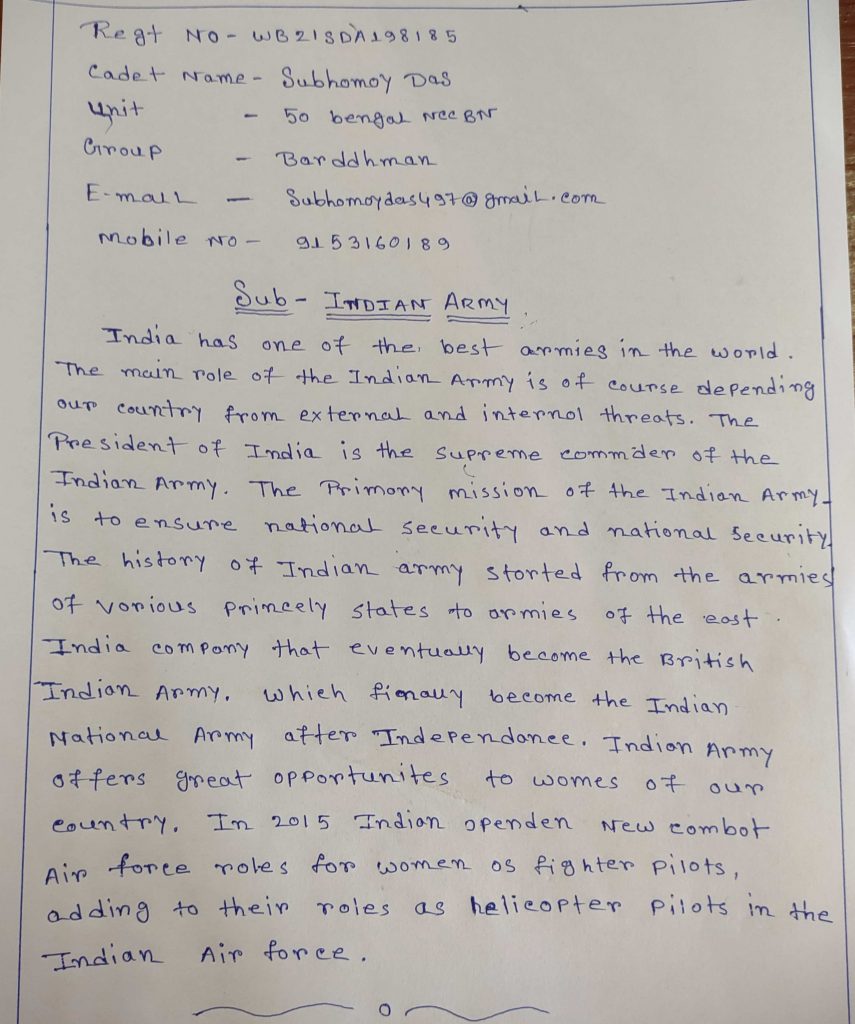 Regt No - WB21SDA198185
Cadet Name - Subhomoy Das
Unit - 50 bengal NCC BN
Group - Barddhman
E-mail - Subhomoydas497@gmail.com
Mobile No - 9153160189
Sub - INDIAN ARMY
India has one of the best armies in the world.
The main role of the Indian Army is of course depending
our country from external and internol threats. The
President of India is the supreme commder of the
Indian Army. The Primony mission of the Indian Army
is to ensure national security and national security.
The history of Indian army storted from the armies
of vorious princely states to ormies of the east
India compony that eventually become the British
Indian Army. which fionally become the Indian
National Army after Independonce. Indion Army
offers great opportunites to womes of our
country. In 2015 Indion openden New combot
Air force roles for women os fighter pilots,
adding to their roles as helicopter pilots in the
Indian Air force.